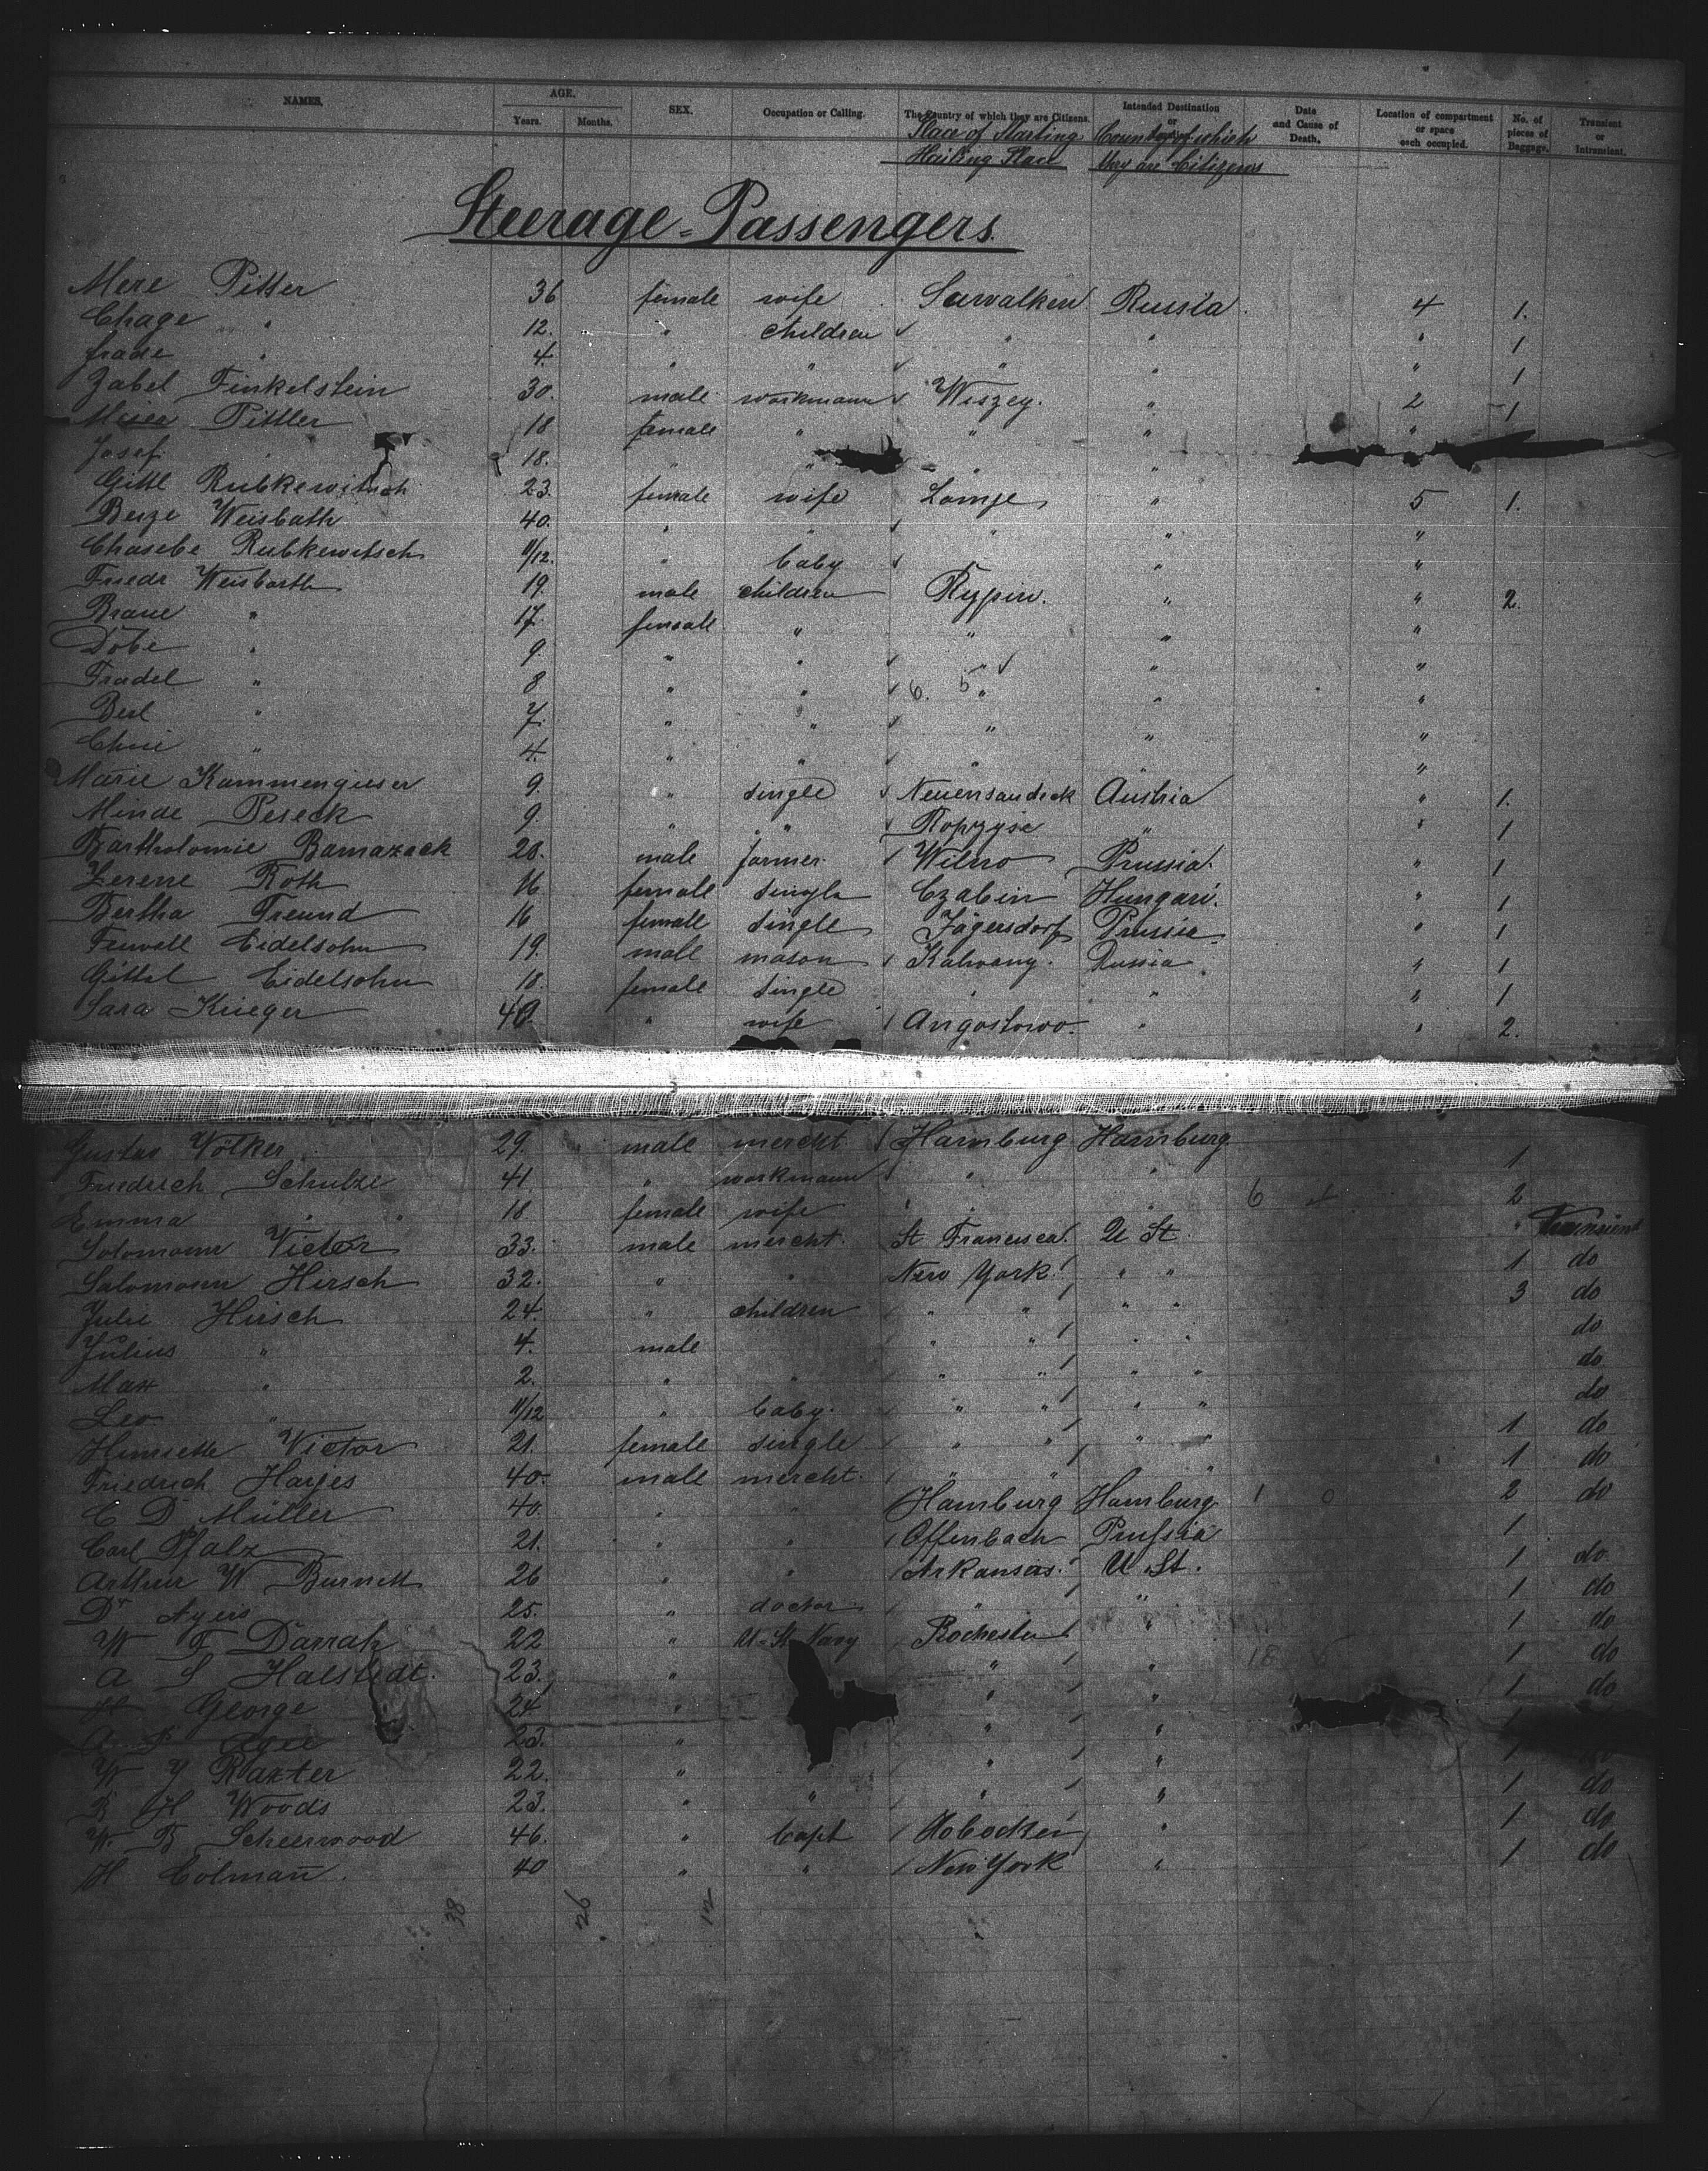 NAMES. AGE. SEX. Occupation or Calling. The Country of which they are Citizens. Intended Destination or Date and Cause of Death. Location of compartment or space each occupied. No. of pieces of Baggage. Transient or Intransient.
Years. Months.
Place of Starting Country of which
Hailing Place they are Citizens
Steerage-Passengers.
Mere Pitter 36 female wife Suwalken Russia. 4 1.
Chage " 12. " children " " " 1
" 4. " " " " " 1
Zabel Finkelstein 30. male workmann Wiszey. " 2 1
Pittler 18 female " " " "
Josef " 18. " " " "
Gittl Rubkewitsch 23. female wife Lomze " 5 1.
Berze Weisbath 40. " " " "
Chasebe Rubkewitsch 11/12. " baby " "
Friedr Weisbarth 19. male children Rypin. " " 2.
Braue " 17. female " " " "
Dobe " 9. " " " " "
Fradel " 8 " " 6. 5 " " "
Berl " 7. " " " " "
Chni " 4. " " " " "
Marie Kammengieser 9. " single Neuensandeck Austria " 1.
Minde Peseck 9. " " Ropzyse " " 1
Bartholomie Bamazack 20. male farmer. Wilno Prussia. " 1
Zerene Roth 16 female single Czabin Hungari. " 1
Bertha Freund 16 female single Jägersdorf Prussia " 1
Eidelsohn 19. male mason Kalwany. Russia " 1
Gittel Eidelsohn 18. female single " " " 1
Sara Krieger 40. " wife Angostowo. " " 2.
Gustav Völker 29. male mercht Hamburg Hamburg 1
Friedrich Schulze 41 " workmann " " 6 2
Emma " 18 female wife " " "
Solomonn Victor 33. male mercht. St Francisca. U St. 1 Transient
Salomonn Hirsch 32. " " New York. " " 3 do
Julie Hirsch 24. " children " " " " do
Julius " 4. male " " " " do
Max " 2. " " " " " " do
Leo " 11/12 " baby. " " " " do
Henriette Victor 21. female single " " " " 1 do
Friedrich Harjes 40. male mercht. " " " 1 do
C D Müller 40. " " Hamburg Hamburg 1 0 2 do
Carl Pfalz 21. " " Offenbach Prussia 1
Arthur W Burnett 26 " " Arkansas. U St. 1 do
Dr Ayers 25. " doctor " " 1 do
W F Darrah 22 " U-St. Navy Rochester " 1 do
A S Halstedt. 23. " " " 18 1 do
H George 24 " " " 1 do
23. " " " 1
W Y Raxter 22. " " " 1 do
B H Woods 23. " " " " 1 do
W. B Scherwood 46. " Capt Hobocken " 1 do
H Colmann. 40 " " New York " 1 do
38 26 12